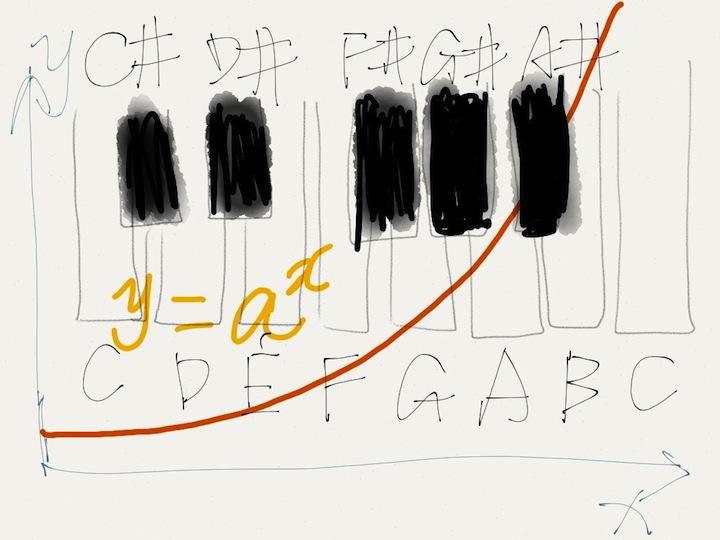 y C# D# F# G# A#
y = aˣ
C D E F G A B C
x